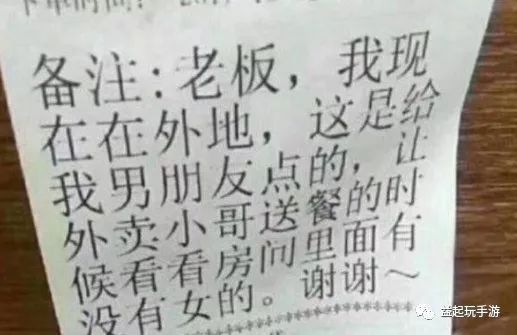 备注:老板，我现
在在外地，这是给
我男朋友点的，让
外卖小哥送餐的时
候看看房间里面有
没有女的。谢谢～
********************
益起玩手游